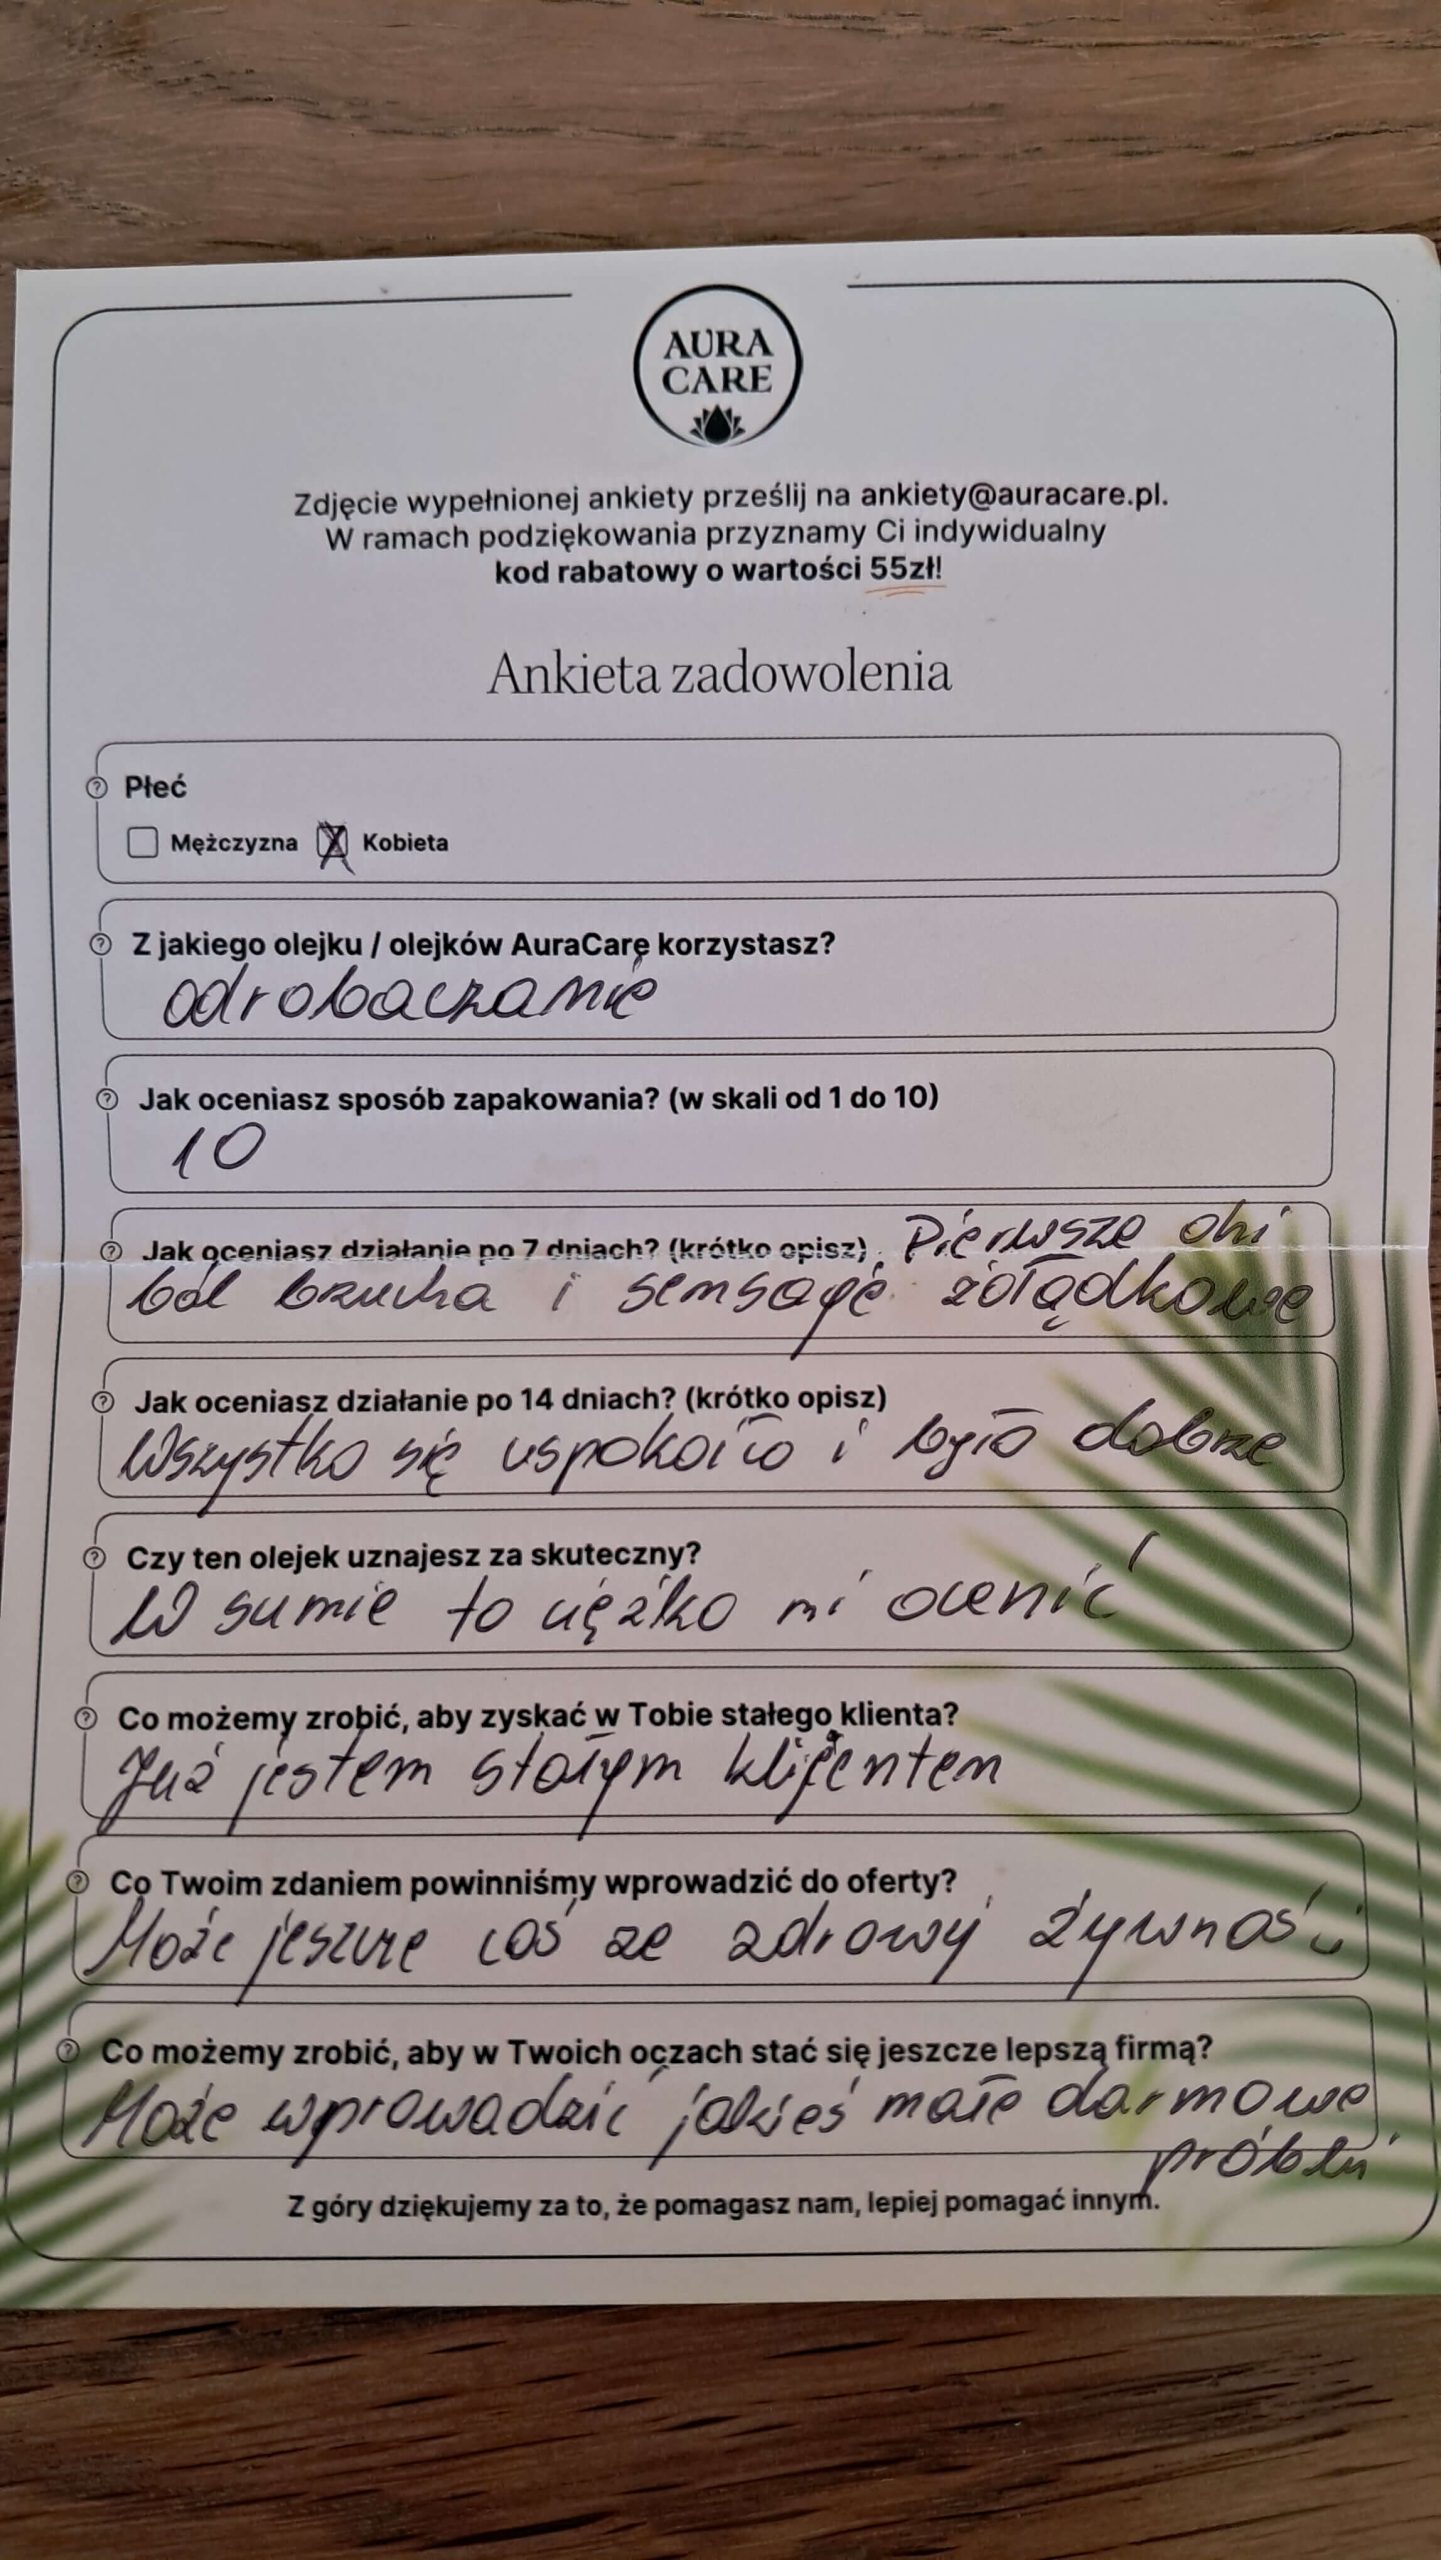 AURA
CARE
Zdjęcie wypełnionej ankiety prześlij na ankiety@auracare.pl.
W ramach podziękowania przyznamy Ci indywidualny
kod rabatowy o wartości 55zł!
Ankieta zadowolenia
Płeć
Mężczyzna X Kobieta
Z jakiego olejku / olejków AuraCare korzystasz?
odrobaczanie
Jak oceniasz sposób zapakowania? (w skali od 1 do 10)
10
Jak oceniasz działanie po 7 dniach? (krótko opisz) Pierwsze dni
ból brzucha i sensacje żołądkowe
Jak oceniasz działanie po 14 dniach? (krótko opisz)
Wszystko się uspokoiło i było dobrze
Czy ten olejek uznajesz za skuteczny?
W sumie to ciężko mi ocenić
Co możemy zrobić, aby zyskać w Tobie stałego klienta?
Już jestem stałym klijentem
Co Twoim zdaniem powinniśmy wprowadzić do oferty?
Może jeszcze coś ze zdrowy żywność
Co możemy zrobić, aby w Twoich oczach stać się jeszcze lepszą firmą?
Może wprowadzić jakieś małe darmowe
próbki
Z góry dziękujemy za to, że pomagasz nam, lepiej pomagać innym.